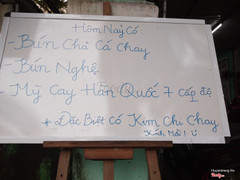 Hôm Nay Có
- Bún Chả Cá Chay
- Bún Nghệ
- Mỳ Cay Hàn Quốc 7 cấp độ
+ Đặc Biệt có Kim Chi Chay
Kính Mời!